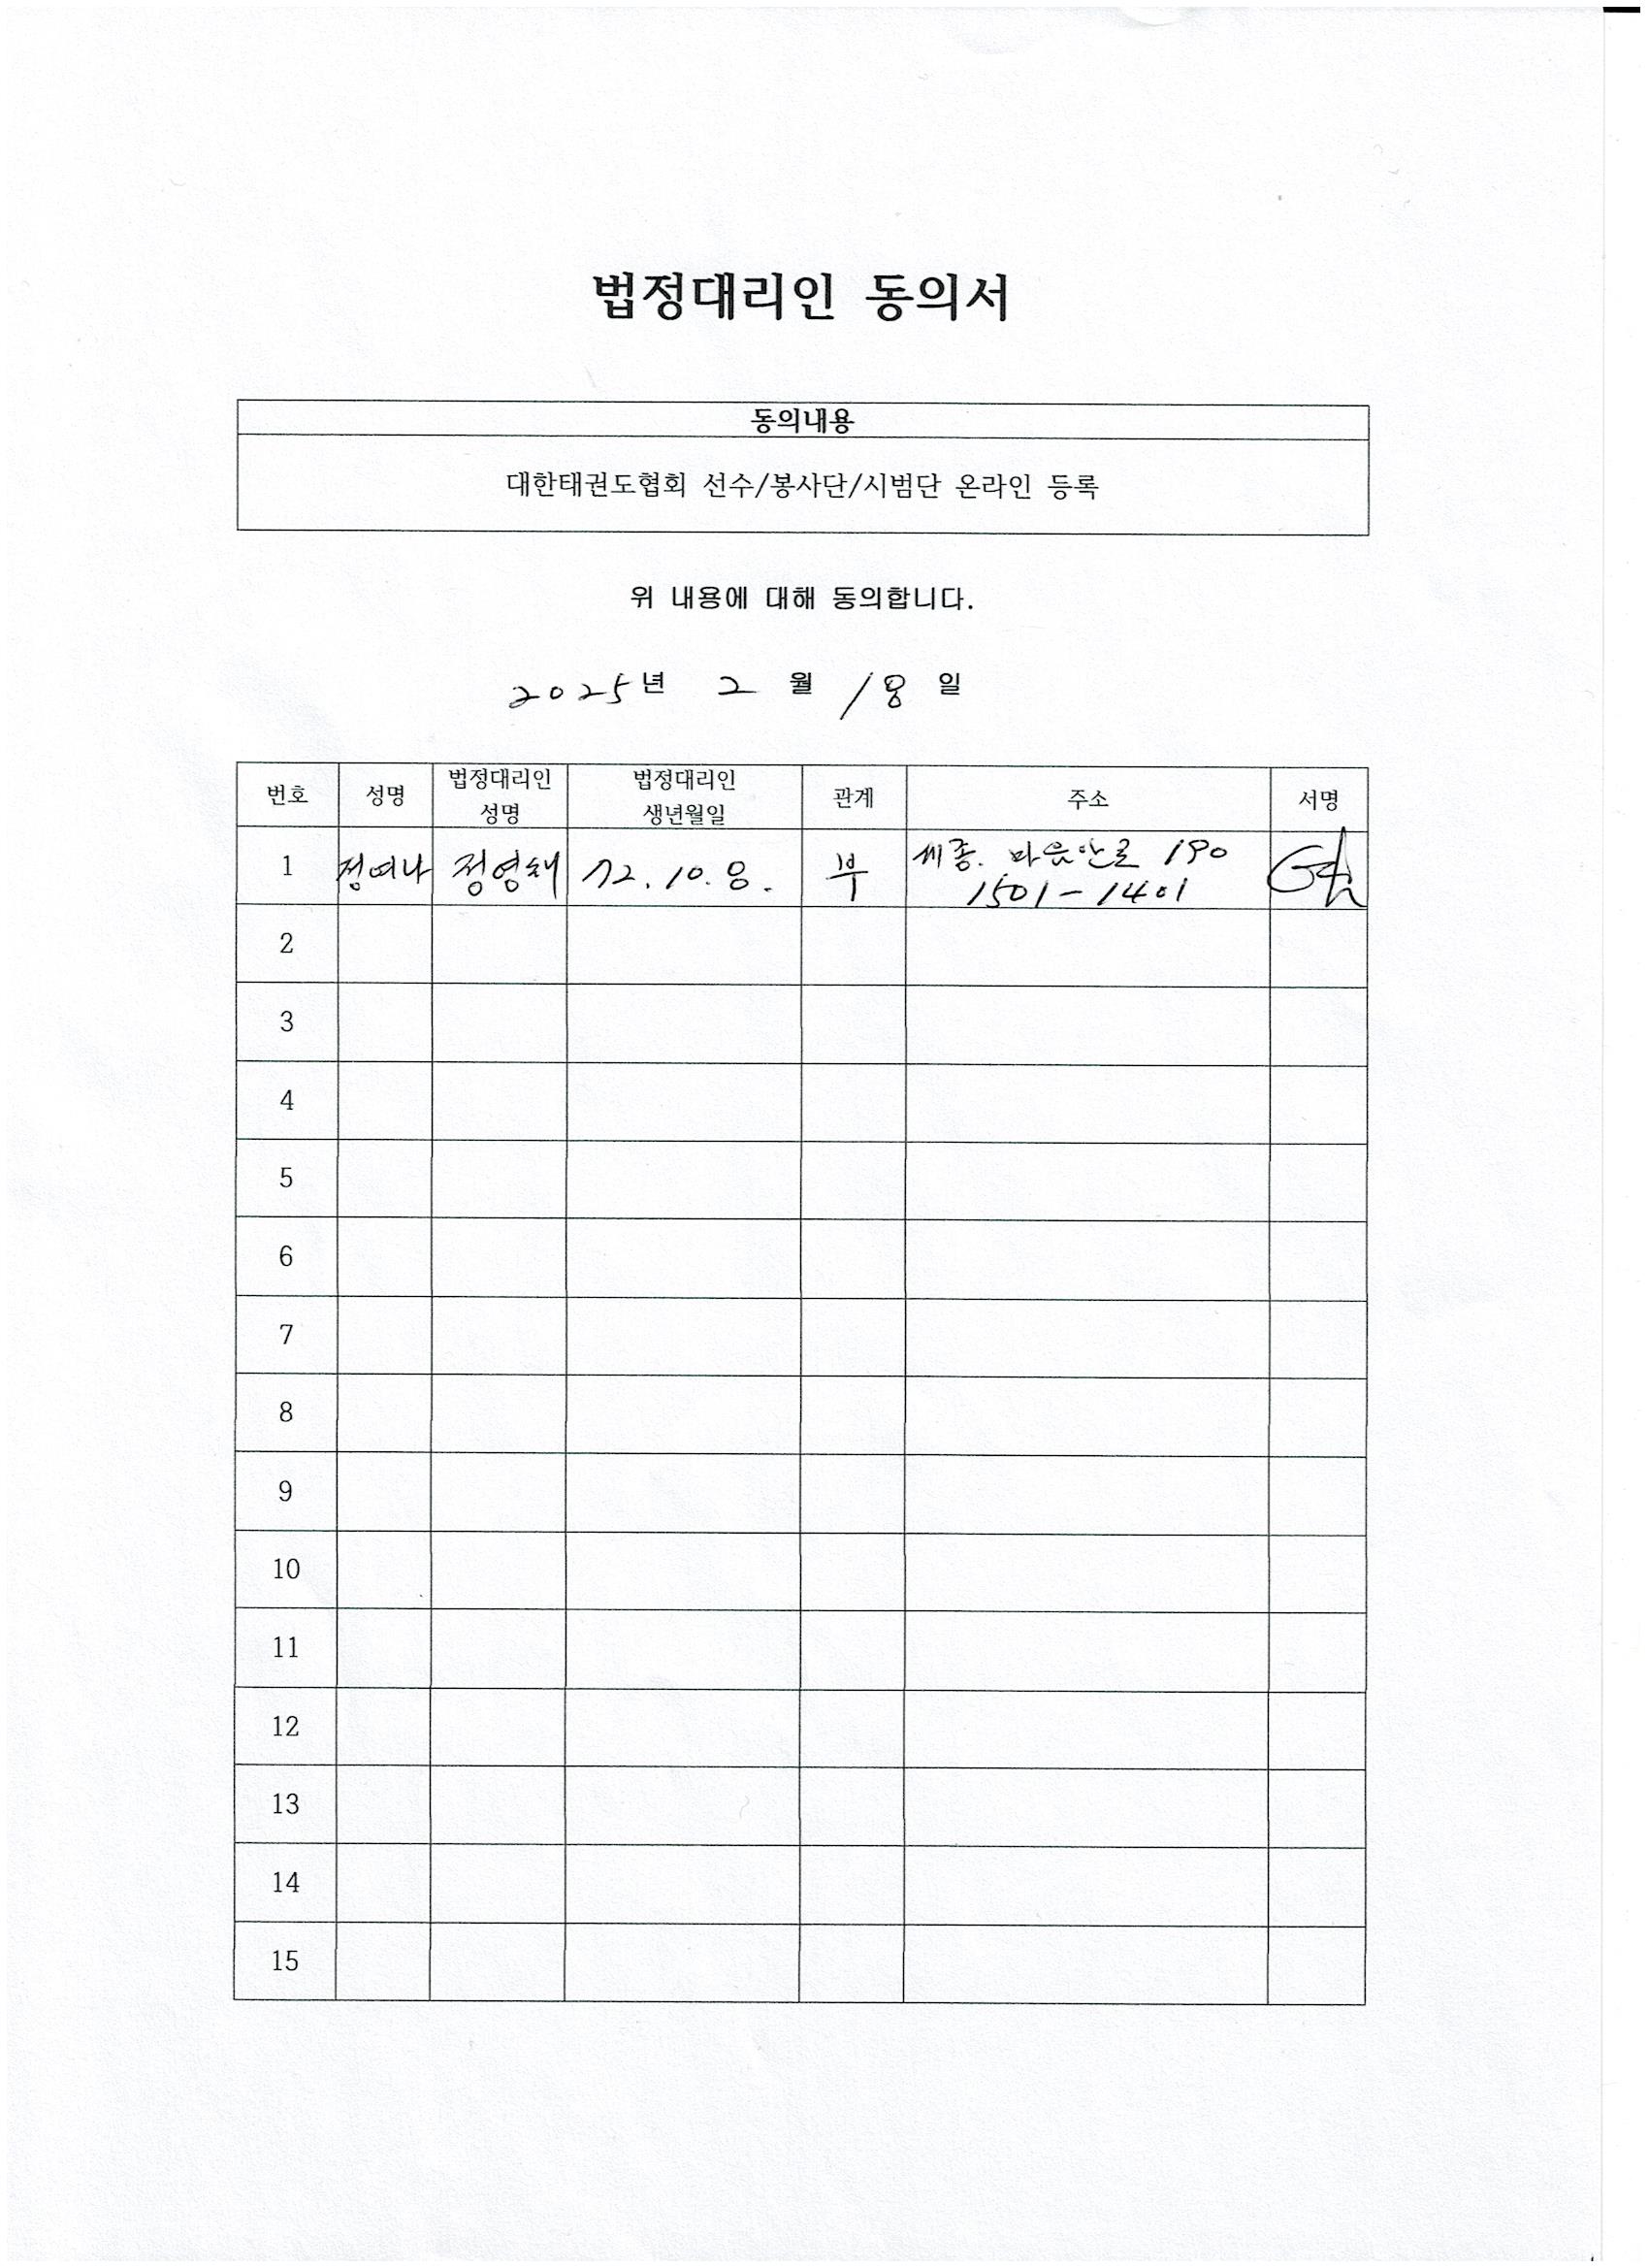 법정대리인 동의서
동의내용
대한태권도협회 선수/봉사단/시범단 온라인 등록
위 내용에 대해 동의합니다.
2025년 2 월 18 일
번호 성명 법정대리인 성명 법정대리인 생년월일 관계 주소 서명
1 정여나 72.10.8. 부 세종. 마음안로 190
1501-1401
2
3
4
5
6
7
8
9
10
11
12
13
14
15